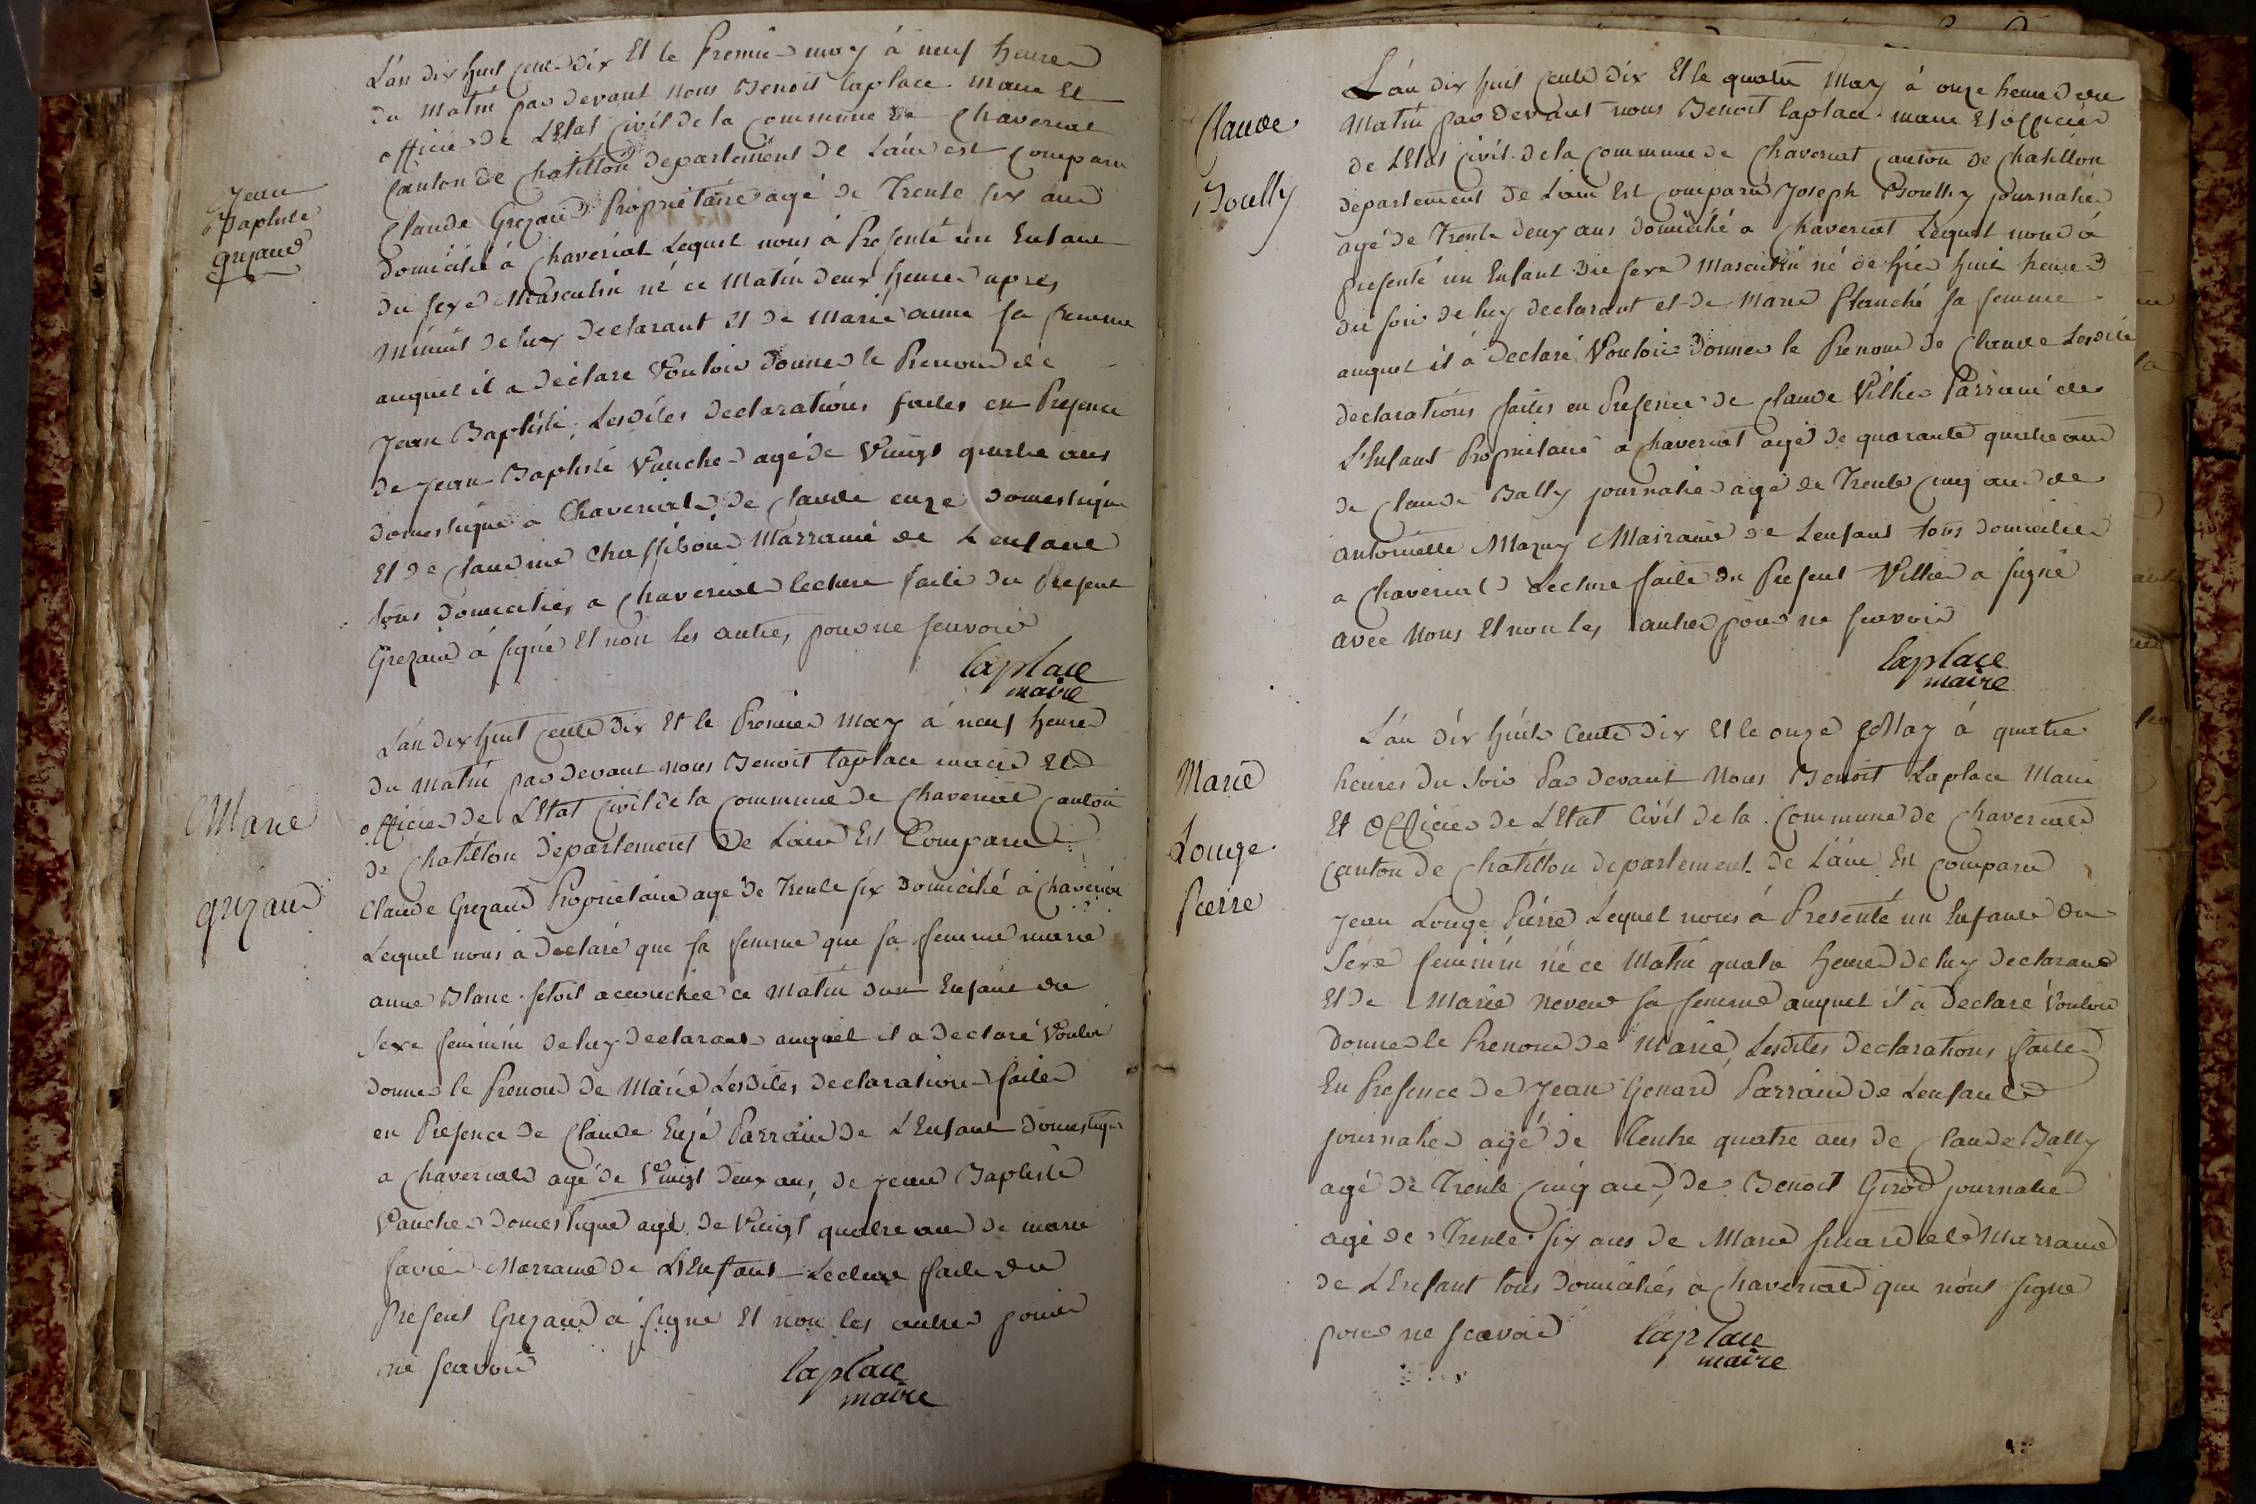 Jean
Baptiste
grezaud
L'an dix huit cent dix Et le Premier may à neuf heures
du Matin par devant nous Benoit laplace maire Et
officier de L'Etat Civil de la Commune de Chaveriat
Canton de Chatillon departement de L'ain est Comparu
Claude Grezaud Proprietaire agé de Trente six ans
domicilié à Chaveriat Lequel nous à Presenté un Enfant
du sexe Masculin né ce Matin deux heures après
Minuit de luy declarant Et de Marie anne sa femme
auquel il a déclaré Vouloir donner le Prenom de
Jean Baptiste Lesdites declarations faites en Presence
de Jean Baptiste Vaucher agé de Vingt quatre ans
domestique a Chaveriat de Claude domestique
Et de Claudine Marraine de L'enfant
tous domiciliés a Chaveriat lecture faite du Present
Grezaud à signé Et non les autres pour ne scavoir
laplace
maire
Marie
grezaud
L'an dix huit cent dix Et le Premier May à neuf heures
du Matin par devant nous Benoit laplace maire Et
officier de L'Etat Civil de la Commune de Chaveriat Canton
de Chatillon departement de L'ain Est Comparu
Claude Grezaud Proprietaire agé de Trente six domicilié à Chaveriat
Lequel nous à declaré que sa femme que sa femme marie
anne Blanc setoit accouchée ce Matin dun Enfant du
sexe feminin de luy declarant auquel il a declaré Vouloir
donner le Prenom de Marie Lesdites declarations faites
en Presence de Claude Parrain de L'Enfant domestique
a Chaveriat agé de Vingt deux ans, de Jean Baptiste
Vaucher domestique agé de Vingt quatre ans de marie
Marraine de L'Enfant Lecture faite du
Present Grezaud à signé Et non les autres pour
ne scavoir
laplace
maire
Claude
Boully
L'an dix huit cent dix Et le quatre May à onze heures du
Matin par devant nous Benoit laplace maire Et officier
de L'Etat Civil de la Commune de Chaveriat Canton de Chatillon
departement de L'ain Est comparu Joseph Boully journalier
agé de Trente deux ans domicilié a Chaveriat Lequel nous à
presenté un Enfant du sexe Masculin né de hier huit heures
du soir de luy declarant et de Marie Planché sa femme
auquel il à declaré Vouloir donner le Prenom de Claude Lesdites
declarations faites en Presence de Claude Villier Parrain de
L'Enfant Proprietaire a Chaveriat agé de quarante quatre ans
de Claude Bally journalier agé de Trente Cinq ans de
antoinette Mazuy Mairaine de L'enfant tous domiciliés
a Chaveriat Lecture faite du Present Villier a signé
avec Nous Et non les autres pour ne scavoir
laplace
maire
Marie
Louge
Pierre
L'an dix huit Cent Dix Et le onze May á quatre
heures du Soir Par devant Nous Benoit Laplace Maire
Et Officier de L'Etat Civil de la Commune de Chaveriat
Canton de Chatillon departement de L'ain Est comparu
Jean Louge Pierre Lequel nous á Presenté un Enfant du
Sexe feminin né ce Matin quatre heures de luy declarant
Et de Marie neveu sa femme auquel il à declaré Vouloir
donner le Prenom de Marie Lesdites declarations faites
En Presence de Jean Genard Parrain de L'enfant
journalier agé de Trente quatre ans de Claude Bally
agé de Trente Cinq ans de Benoit Girod journalier
agé de Trente six ans de Marie Marraine
de L'Enfant tous domiciliés a Chaveriat qui n'ont signé
pour ne scavoir
laplace
maire